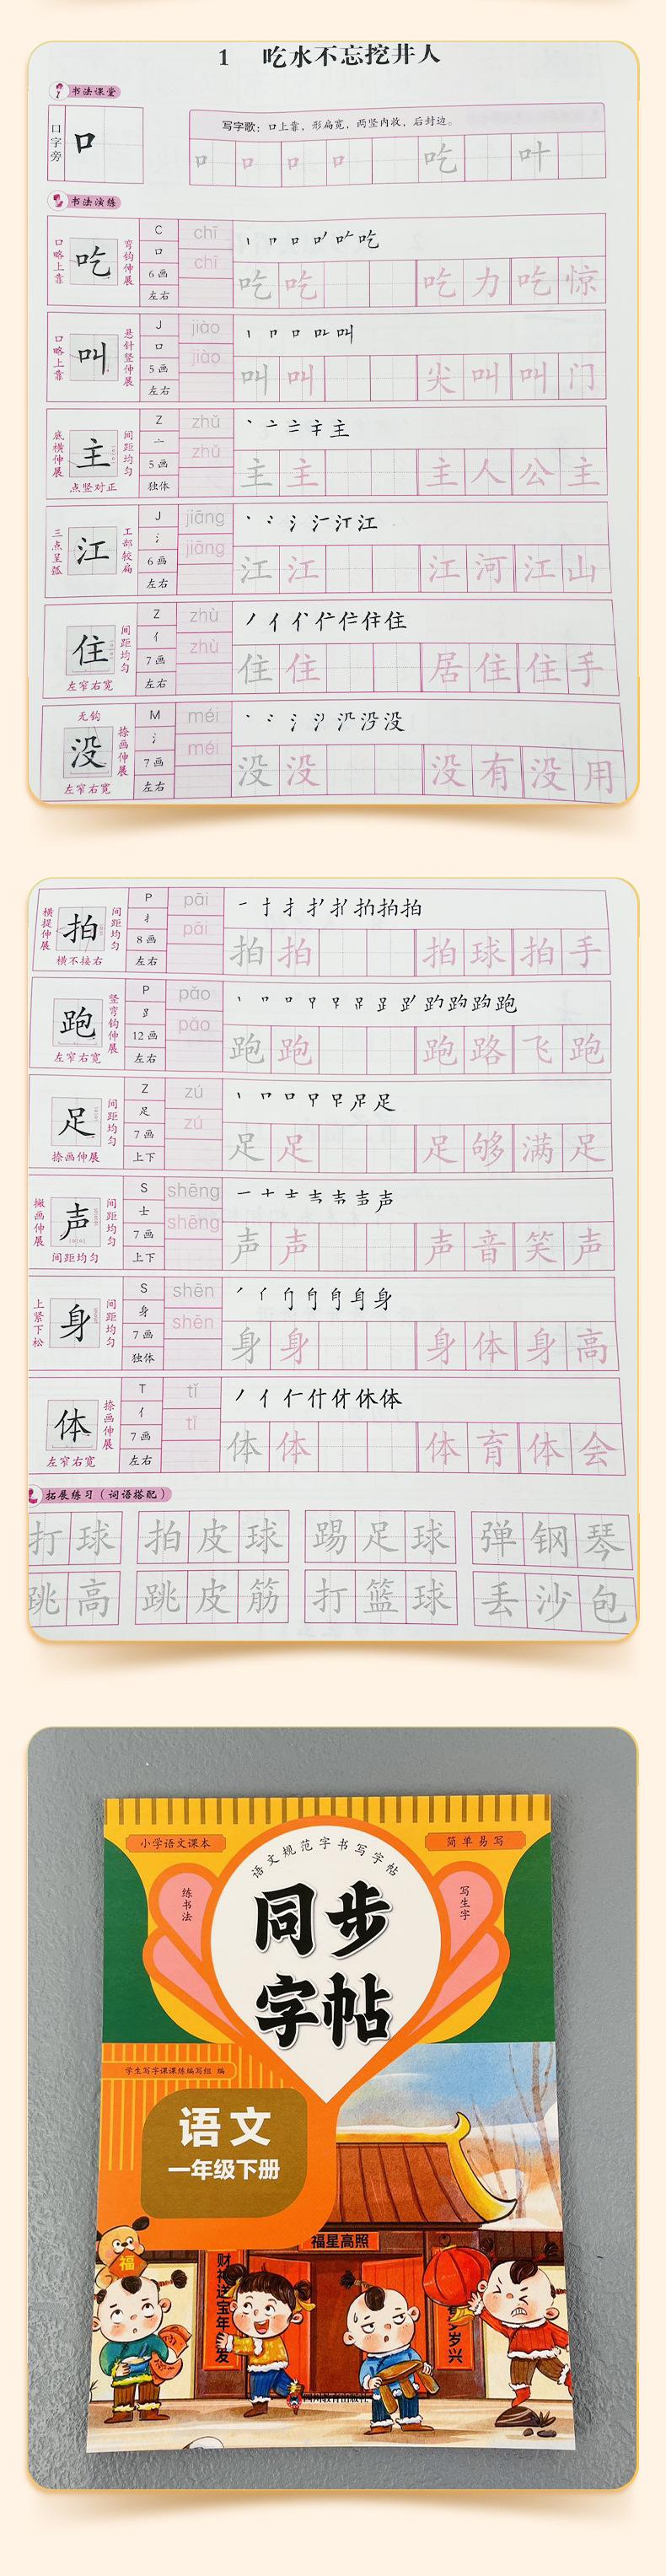 1 吃水不忘挖井人
书法课堂
口字旁
口
写字歌：口上靠，形扁宽，两竖内收，后封边。
口 口 口 口 吃 叶
书法演练
口略上靠 吃 弯钩伸展
C 口 6画 左右
chī chī
吃 吃 吃力 吃惊
口略上靠 叫 悬针竖伸展
J 口 5画 左右
jiào jiào
叫 叫 尖叫 叫门
底横伸展 主 间距均匀
点竖对正
Z 亠 5画 独体
zhǔ zhǔ
主 主 主人公 主
三点呈弧 江 工部较扁
J 氵 6画 左右
jiāng jiāng
江 江 江河 江山
住 间距均匀
左窄右宽
Z 亻 7画 左右
zhù zhù
住 住 居住 住手
无钩
没 捺画伸展
左窄右宽
M 氵 7画 左右
méi méi
没 没 没有 没用
横提伸展 拍 间距均匀
横不接右
P 扌 8画 左右
pāi pāi
拍 拍 拍球 拍手
跑 竖弯钩伸展
左窄右宽
P 𧾷 12画 左右
pǎo pǎo
跑 跑 跑路 飞跑
足 间距均匀
捺画伸展
Z 足 7画 上下
zú zú
足 足 足够 满足
撇画伸展 声 间距均匀
间距均匀
S 士 7画 上下
shēng shēng
声 声 声音 笑声
上紧下松 身 间距均匀
S 身 7画 独体
shēn shēn
身 身 身体 身高
体 捺画伸展
左窄右宽
T 亻 7画 左右
tǐ tǐ
体 体 体育 体会
拓展练习（词语搭配）
打球 拍皮球 踢足球 弹钢琴
跳高 跳皮筋 打篮球 丢沙包
小学语文课本
简单易写
语文规范字书写字帖
练书法
写生字
同步
字帖
学生写字课课练编写组 编
语文
一年级下册
福星高照
福
财神送宝年年发
岁岁兴
四川教育出版社